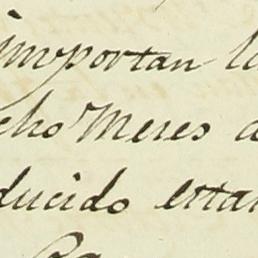 importan l
cho Meses a
ducido estan